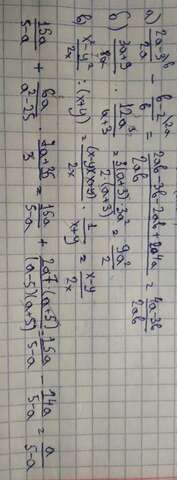 а) (2a-3)/2a \b - (b-2)/b \2a = (2ab-3b-2ab+4a)/2ab = (4a-3b)/2ab
б) (3a+9)/8a · 12a³/(a+3) = 3(a+3)·3a²/2(a+3) = 9a²/2
в) (x²-y²)/2x : (x+y) = (x-y)(x+y)/2x · 1/(x+y) = (x-y)/2x
15a/(5-a) + 6a/(a²-25) · (7a+35)/3 = 15a/(5-a) + 2a7(a+5)/(a-5)(a+5) = 15a/(5-a) - 14a/(5-a) = a/(5-a)